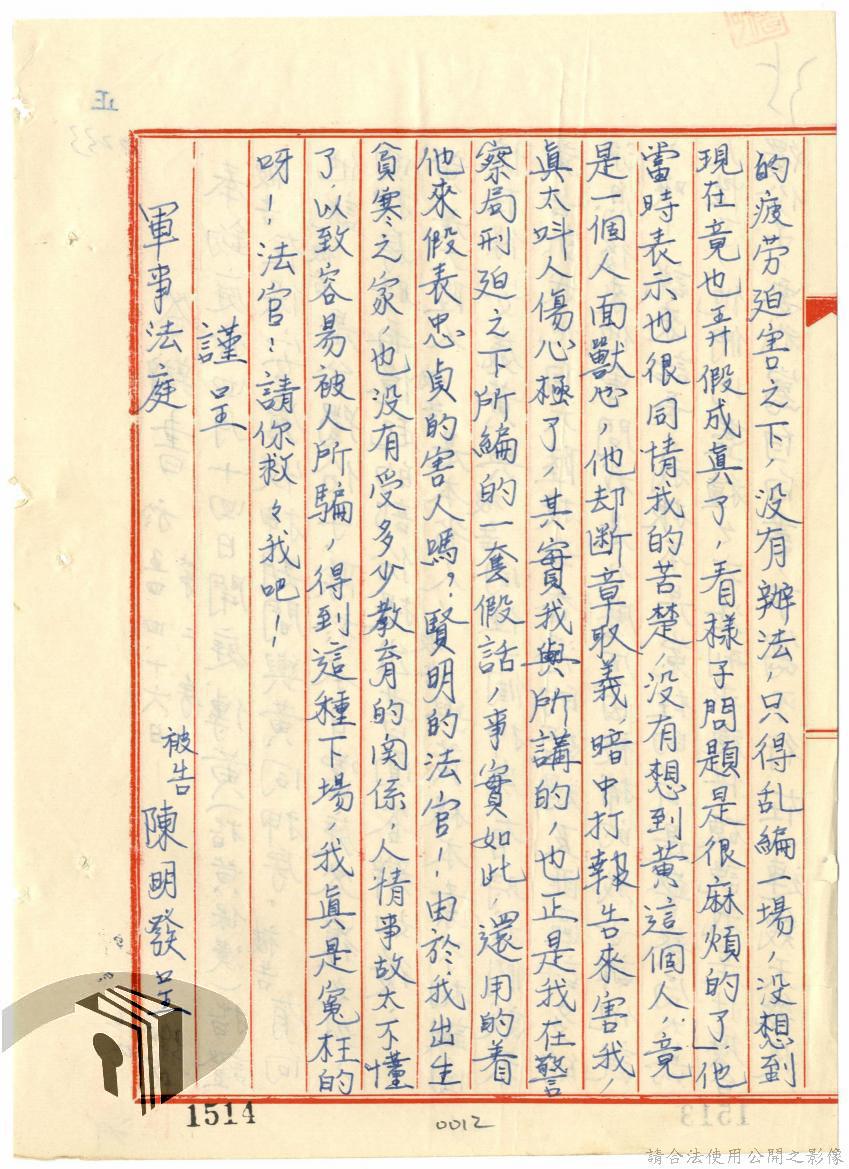 的疲劳迫害之下，没有辦法，只得乱編一場，没想到
現在竟也弄假成真了，看樣子問題是很麻煩的了」他
當時表示也很同情我的苦楚，没有想到黄這個人，竟
是一個人面獸心，他却断章取義，暗中打報告來害我，
真太呌人傷心極了，其實我與所講的，也正是我在警
察局刑迫之下所編的一套假話，事實如此，還用的着
他來假表忠貞的害人嗎？賢明的法官！由於我出生
貧寒之家，也没有受多少教育的関係，人情事故太不懂
了，以致容易被人所騙，得到這種下場，我真是冤枉的
呀！法官！請你救々我吧！
謹呈
軍事法庭
被告 陳明發呈
1514
0012
請合法使用公開之影像